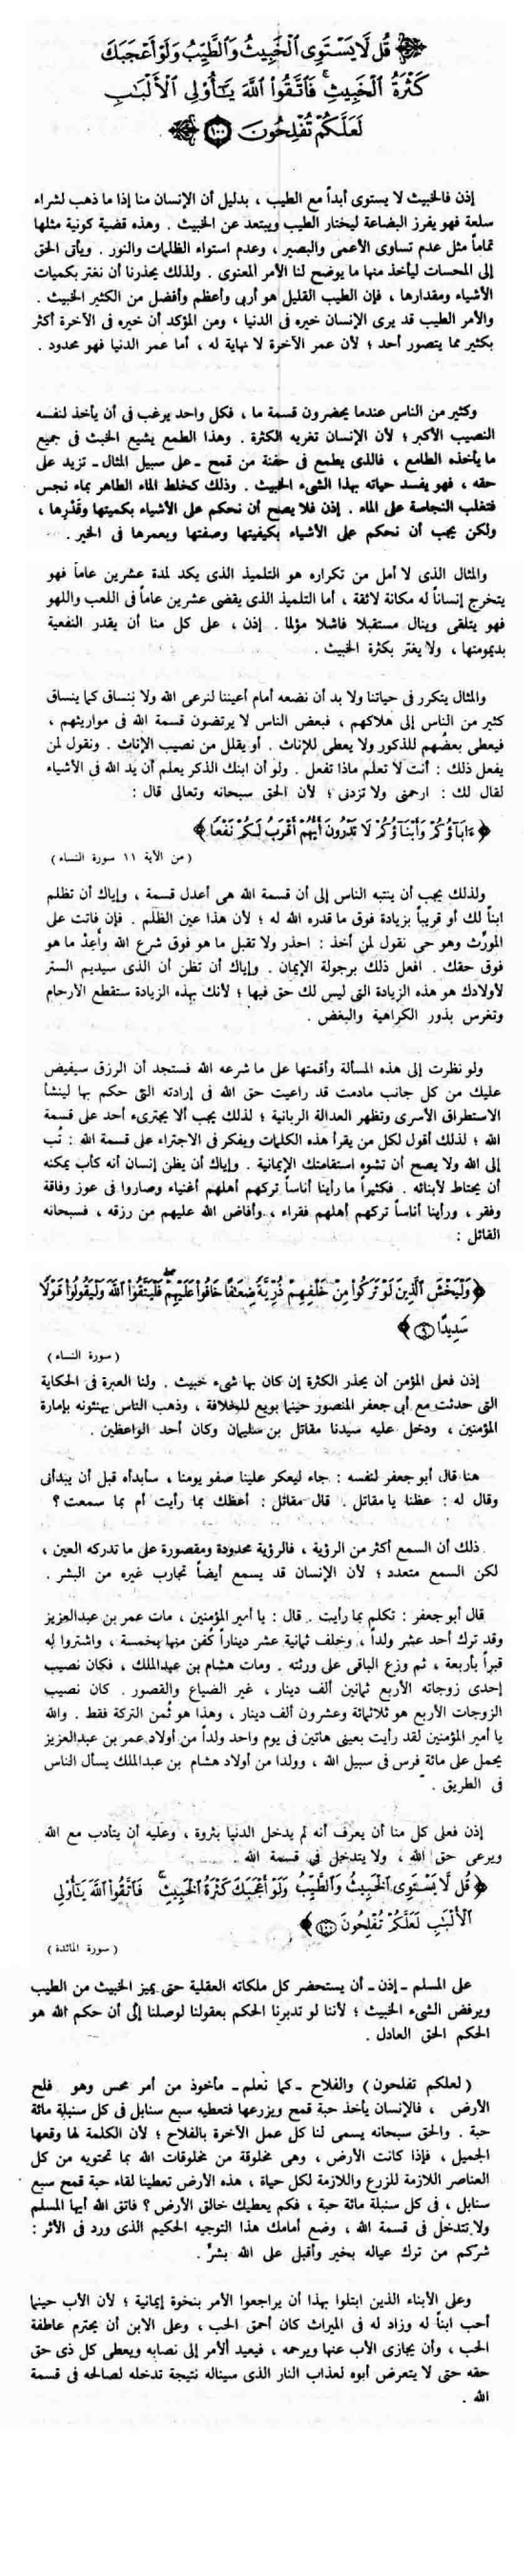 قُل لَّا يَسْتَوِى الْخَبِيثُ وَالطَّيِّبُ وَلَوْ أَعْجَبَكَ
كَثْرَةُ الْخَبِيثِ فَاتَّقُوا اللَّهَ يَٰٓأُوْلِى الْأَلْبَٰبِ
لَعَلَّكُمْ تُفْلِحُونَ ١٠٠
إذن فالخبيث لا يستوى أبداً مع الطيب ، بدليل أن الإنسان منا إذا ما ذهب لشراء
سلعة فهو يفرز البضاعة ليختار الطيب ويبتعد عن الخبيث . وهذه قضية كونية مثلها
تماماً مثل عدم تساوى الأعمى والبصير ، وعدم استواء الظلمات والنور . ويأتى الحق
إلى المحسات ليأخذ منها ما يوضح لنا الأمر المعنوى . ولذلك يحذرنا أن نغتر بكميات
الأشياء ومقدارها ، فإن الطيب القليل هو أربى وأعظم وأفضل من الكثير الخبيث .
والأمر الطيب قد يرى الإنسان خيره فى الدنيا ، ومن المؤكد أن خيره فى الآخرة أكثر
بكثير مما يتصور أحد ؛ لأن عمر الآخرة لا نهاية له ، أما عمر الدنيا فهو محدود .
وكثير من الناس عندما يحضرون قسمة ما ، فكل واحد يرغب فى أن يأخذ لنفسه
النصيب الأكبر ؛ لأن الإنسان تغريه الكثرة . وهذا الطمع يشيع الخبث فى جميع
ما يأخذه الطامع ، فالذى يطمع فى حفنة من قمح ـ على سبيل المثال ـ تزيد على
حقه ، فهو يفسد حياته بهذا الشىء الخبيث . وذلك كخلط الماء الطاهر بماء نجس
فتغلب النجاسة على الماء . إذن فلا يصح أن نحكم على الأشياء بكميتها وقَدْرِها ،
ولكن يجب أن نحكم على الأشياء بكيفيتها وصفتها وبعمرها فى الخير .
والمثال الذى لا أمل من تكراره هو التلميذ الذى يكد لمدة عشرين عاماً فهو
يتخرج إنساناً له مكانة لائقة ، أما التلميذ الذى يقضى عشرين عاماً فى اللعب واللهو
فهو يتلقى وينال مستقبلا فاشلا مؤلما . إذن ، على كل منا أن يقدر النفعية
بديمومتها ، ولا يغتر بكثرة الخبيث .
والمثال يتكرر فى حياتنا ولا بد أن نضعه أمام أعيننا لنرعى الله ولا ننساق كما ينساق
كثير من الناس إلى هلاكهم ، فبعض الناس لا يرتضون قسمة الله فى مواريثهم ،
فيعطى بعضُهم للذكور ولا يعطى للإناث . أو يقلل من نصيب الإناث . ونقول لمن
يفعل ذلك : أنت لا تعلم ماذا تفعل . ولو أن ابنك الذكر يعلم أن يد الله فى الأشياء
لقال لك : ارحمنى ولا تزدنى ؛ لأن الحق سبحانه وتعالى قال :
﴿ ءَابَآؤُكُمْ وَأَبْنَآؤُكُمْ لَا تَدْرُونَ أَيُّهُمْ أَقْرَبُ لَكُمْ نَفْعًا ﴾
( من الآية ١١ سورة النساء )
ولذلك يجب أن ينتبه الناس إلى أن قسمة الله هى أعدل قسمة ، وإياك أن تظلم
ابناً لك أو قريباً بزيادة فوق ما قدره الله له ؛ لأن هذا عين الظلم . فإن فاتت على
المورِّث وهو حى نقول لمن أخذ : احذر ولا تقبل ما هو فوق شرع الله وأَعِدْ ما هو
فوق حقك . افعل ذلك برجولة الإيمان . وإياك أن تظن أن الذى سيديم الستر
لأولادك هو هذه الزيادة التى ليس لك حق فيها ؛ لأنك بهذه الزيادة ستقطع الأرحام
وتغرس بذور الكراهية والبغض .
ولو نظرت إلى هذه المسألة وأقمتها على ما شرعه الله فستجد أن الرزق سيفيض
عليك من كل جانب مادمت قد راعيت حق الله فى إرادته التى حكم بها لينشأ
الاستطراق الأسرى وتظهر العدالة الربانية ؛ لذلك يجب ألا يجترىء أحد على قسمة
الله ؛ لذلك أقول لكل من يقرأ هذه الكلمات ويفكر فى الاجتراء على قسمة الله : تُب
إلى الله ولا يصح أن تشوه استقامتك الإيمانية . وإياك أن يظن إنسان أنه كأب يمكنه
أن يحتاط لأبنائه . فكثيراً ما رأينا أناساً تركهم أهلهم أغنياء وصاروا فى عوز وفاقة
وفقر ، ورأينا أناساً تركهم أهلهم فقراء ، وأفاض الله عليهم من رزقه ، فسبحانه
القائل :
﴿ وَلْيَخْشَ الَّذِينَ لَوْ تَرَكُوا مِنْ خَلْفِهِمْ ذُرِّيَّةً ضِعَٰفًا خَافُوا عَلَيْهِمْ فَلْيَتَّقُوا اللَّهَ وَلْيَقُولُوا قَوْلًا
سَدِيدًا ٩ ﴾
( سورة النساء )
إذن فعلى المؤمن أن يحذر الكثرة إن كان بها شىء خبيث . ولنا العبرة فى الحكاية
التى حدثت مع أبى جعفر المنصور حينما بويع للخلافة ، وذهب الناس يهنئونه بإمارة
المؤمنين ، ودخل عليه سيدنا مقاتل بن سليمان وكان أحد الواعظين .
هنا قال أبو جعفر لنفسه : جاء ليعكر علينا صفو يومنا ، سأبدأه قبل أن يبدأنى
وقال له : عظنا يا مقاتل . قال مقاتل : أعظك بما رأيت أم بما سمعت ؟
ذلك أن السمع أكثر من الرؤية ، فالرؤية محدودة ومقصورة على ما تدركه العين ،
لكن السمع متعدد ؛ لأن الإنسان قد يسمع أيضاً تجارب غيره من البشر .
قال أبو جعفر : تكلم بما رأيت . قال : يا أمير المؤمنين ، مات عمر بن عبدالعزيز
وقد ترك أحد عشر ولداً ، وخلف ثمانية عشر ديناراً كُفن منها بخمسة ، واشتروا له
قبراً بأربعة ، ثم وزع الباقى على ورثته . ومات هشام بن عبدالملك ، فكان نصيب
إحدى زوجاته الأربع ثمانين ألف دينار ، غير الضياع والقصور . كان نصيب
الزوجات الأربع هو ثلاثمائة وعشرون ألف دينار ، وهذا هو ثُمن التركة فقط . والله
يا أمير المؤمنين لقد رأيت بعينى هاتين فى يوم واحد ولداً من أولاد عمر بن عبدالعزيز
يحمل على مائة فرس فى سبيل الله ، وولدا من أولاد هشام بن عبدالملك يسأل الناس
فى الطريق .
إذن فعلى كل منا أن يعرف أنه لم يدخل الدنيا بثروة ، وعليه أن يتأدب مع الله
ويرعى حق الله ، ولا يتدخل فى قسمة الله
﴿ قُل لَّا يَسْتَوِى الْخَبِيثُ وَالطَّيِّبُ وَلَوْ أَعْجَبَكَ كَثْرَةُ الْخَبِيثِ فَاتَّقُوا اللَّهَ يَٰٓأُوْلِى
الْأَلْبَٰبِ لَعَلَّكُمْ تُفْلِحُونَ ١٠٠ ﴾
( سورة المائدة )
على المسلم ـ إذن ـ أن يستحضر كل ملكاته العقلية حتى يميز الخبيث من الطيب
ويرفض الشىء الخبيث ؛ لأننا لو تدبرنا الحكم بعقولنا لوصلنا إلى أن حكم الله هو
الحكم الحق العادل .
( لعلكم تفلحون ) والفلاح ـ كما نعلم ـ مأخوذ من أمر محس وهو فلح
الأرض ، فالإنسان يأخذ حبة قمح ويزرعها فتعطيه سبع سنابل فى كل سنبلة مائة
حبة . والحق سبحانه يسمى لنا كل عمل الآخرة بالفلاح ؛ لأن الكلمة لها وقعها
الجميل ، فإذا كانت الأرض ، وهى مخلوقة من مخلوقات الله بما تحتويه من كل
العناصر اللازمة للزرع واللازمة لكل حياة ، هذه الأرض تعطينا لقاء حبة قمح سبع
سنابل ، فى كل سنبلة مائة حبة ، فكم يعطيك خالق الأرض ؟ فاتق الله أيها المسلم
ولا تتدخل فى قسمة الله ، وضع أمامك هذا التوجيه الحكيم الذى ورد فى الأثر :
شركم من ترك عياله بخير وأقبل على الله بشرٍّ .
وعلى الأبناء الذين ابتلوا بهذا أن يراجعوا الأمر بنخوة إيمانية ؛ لأن الأب حينما
أحب ابناً له وزاد له فى الميراث كان أحمق الحب ، وعلى الابن أن يحترم عاطفة
الحب ، وأن يجازى الأب عنها ويرحمه ، فيعيد الأمر إلى نصابه ويعطى كل ذى حق
حقه حتى لا يتعرض أبوه لعذاب النار الذى سيناله نتيجة تدخله لصالحه فى قسمة
الله .